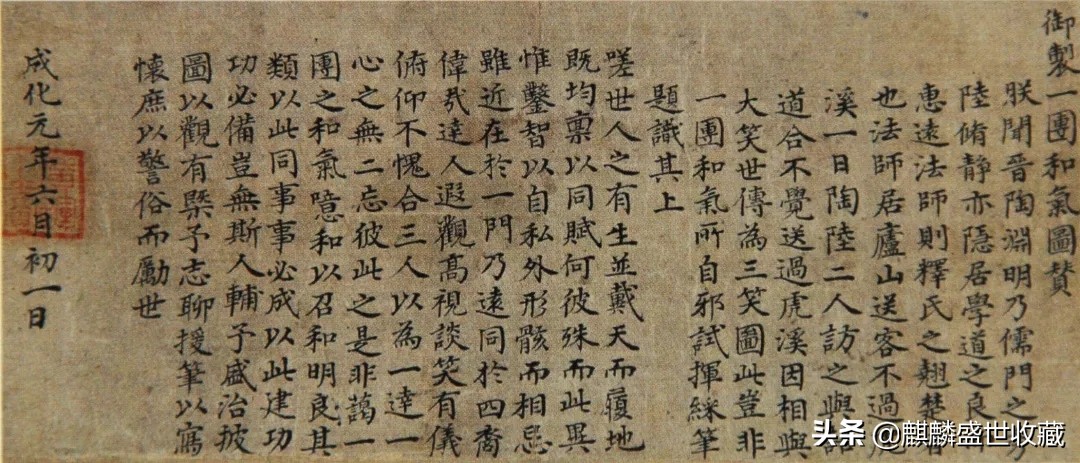 御製一團和氣圖贊
朕聞晉陶淵明乃儒門之秀
陸脩静亦隱居學道之良而
惠遠法師則釋氏之翹楚者
也法師居廬山送客不過虎
溪一日陶陸二人訪之與語
道合不覺送過虎溪因相與
大笑世傳為三笑圖此豈非
一團和氣所自邪試揮綵筆
題識其上
嗟世人之有生並戴天而履地
既均禀以同賦何彼殊而此異
惟鑿智以自私外形骸而相忌
雖近在於一門乃遠同於四裔
偉㦲達人遐觀高視談笑有儀
俯仰不愧合三人以為一達一
心之無二忘彼此之是非藹一
團之和氣噫和以召和明良其
類以此同事事必成以此建功
功必備豈無斯人輔予盛治披
圖以觀有槩予志聊援筆以寫
懷庶以警俗而勵世
成化元年六月初一日
头条 @麒麟盛世收藏